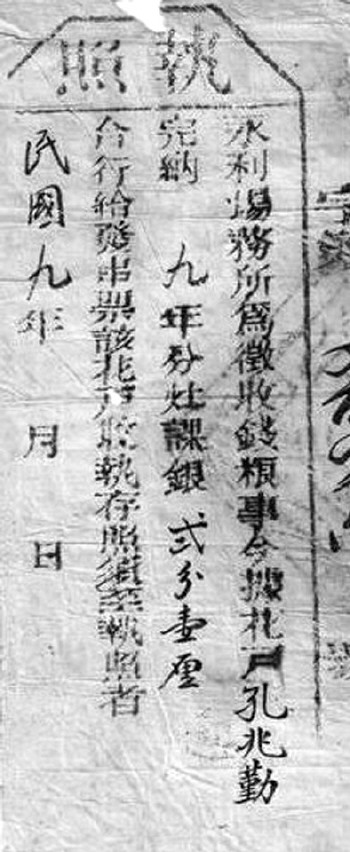 執照
永利場務所爲徵收錢粮事今據花戶孔兆勤
完納 九年分灶課銀 弍分壹厘
合行給發串票該花戶收執存照須至執照者
民國九年 月 日